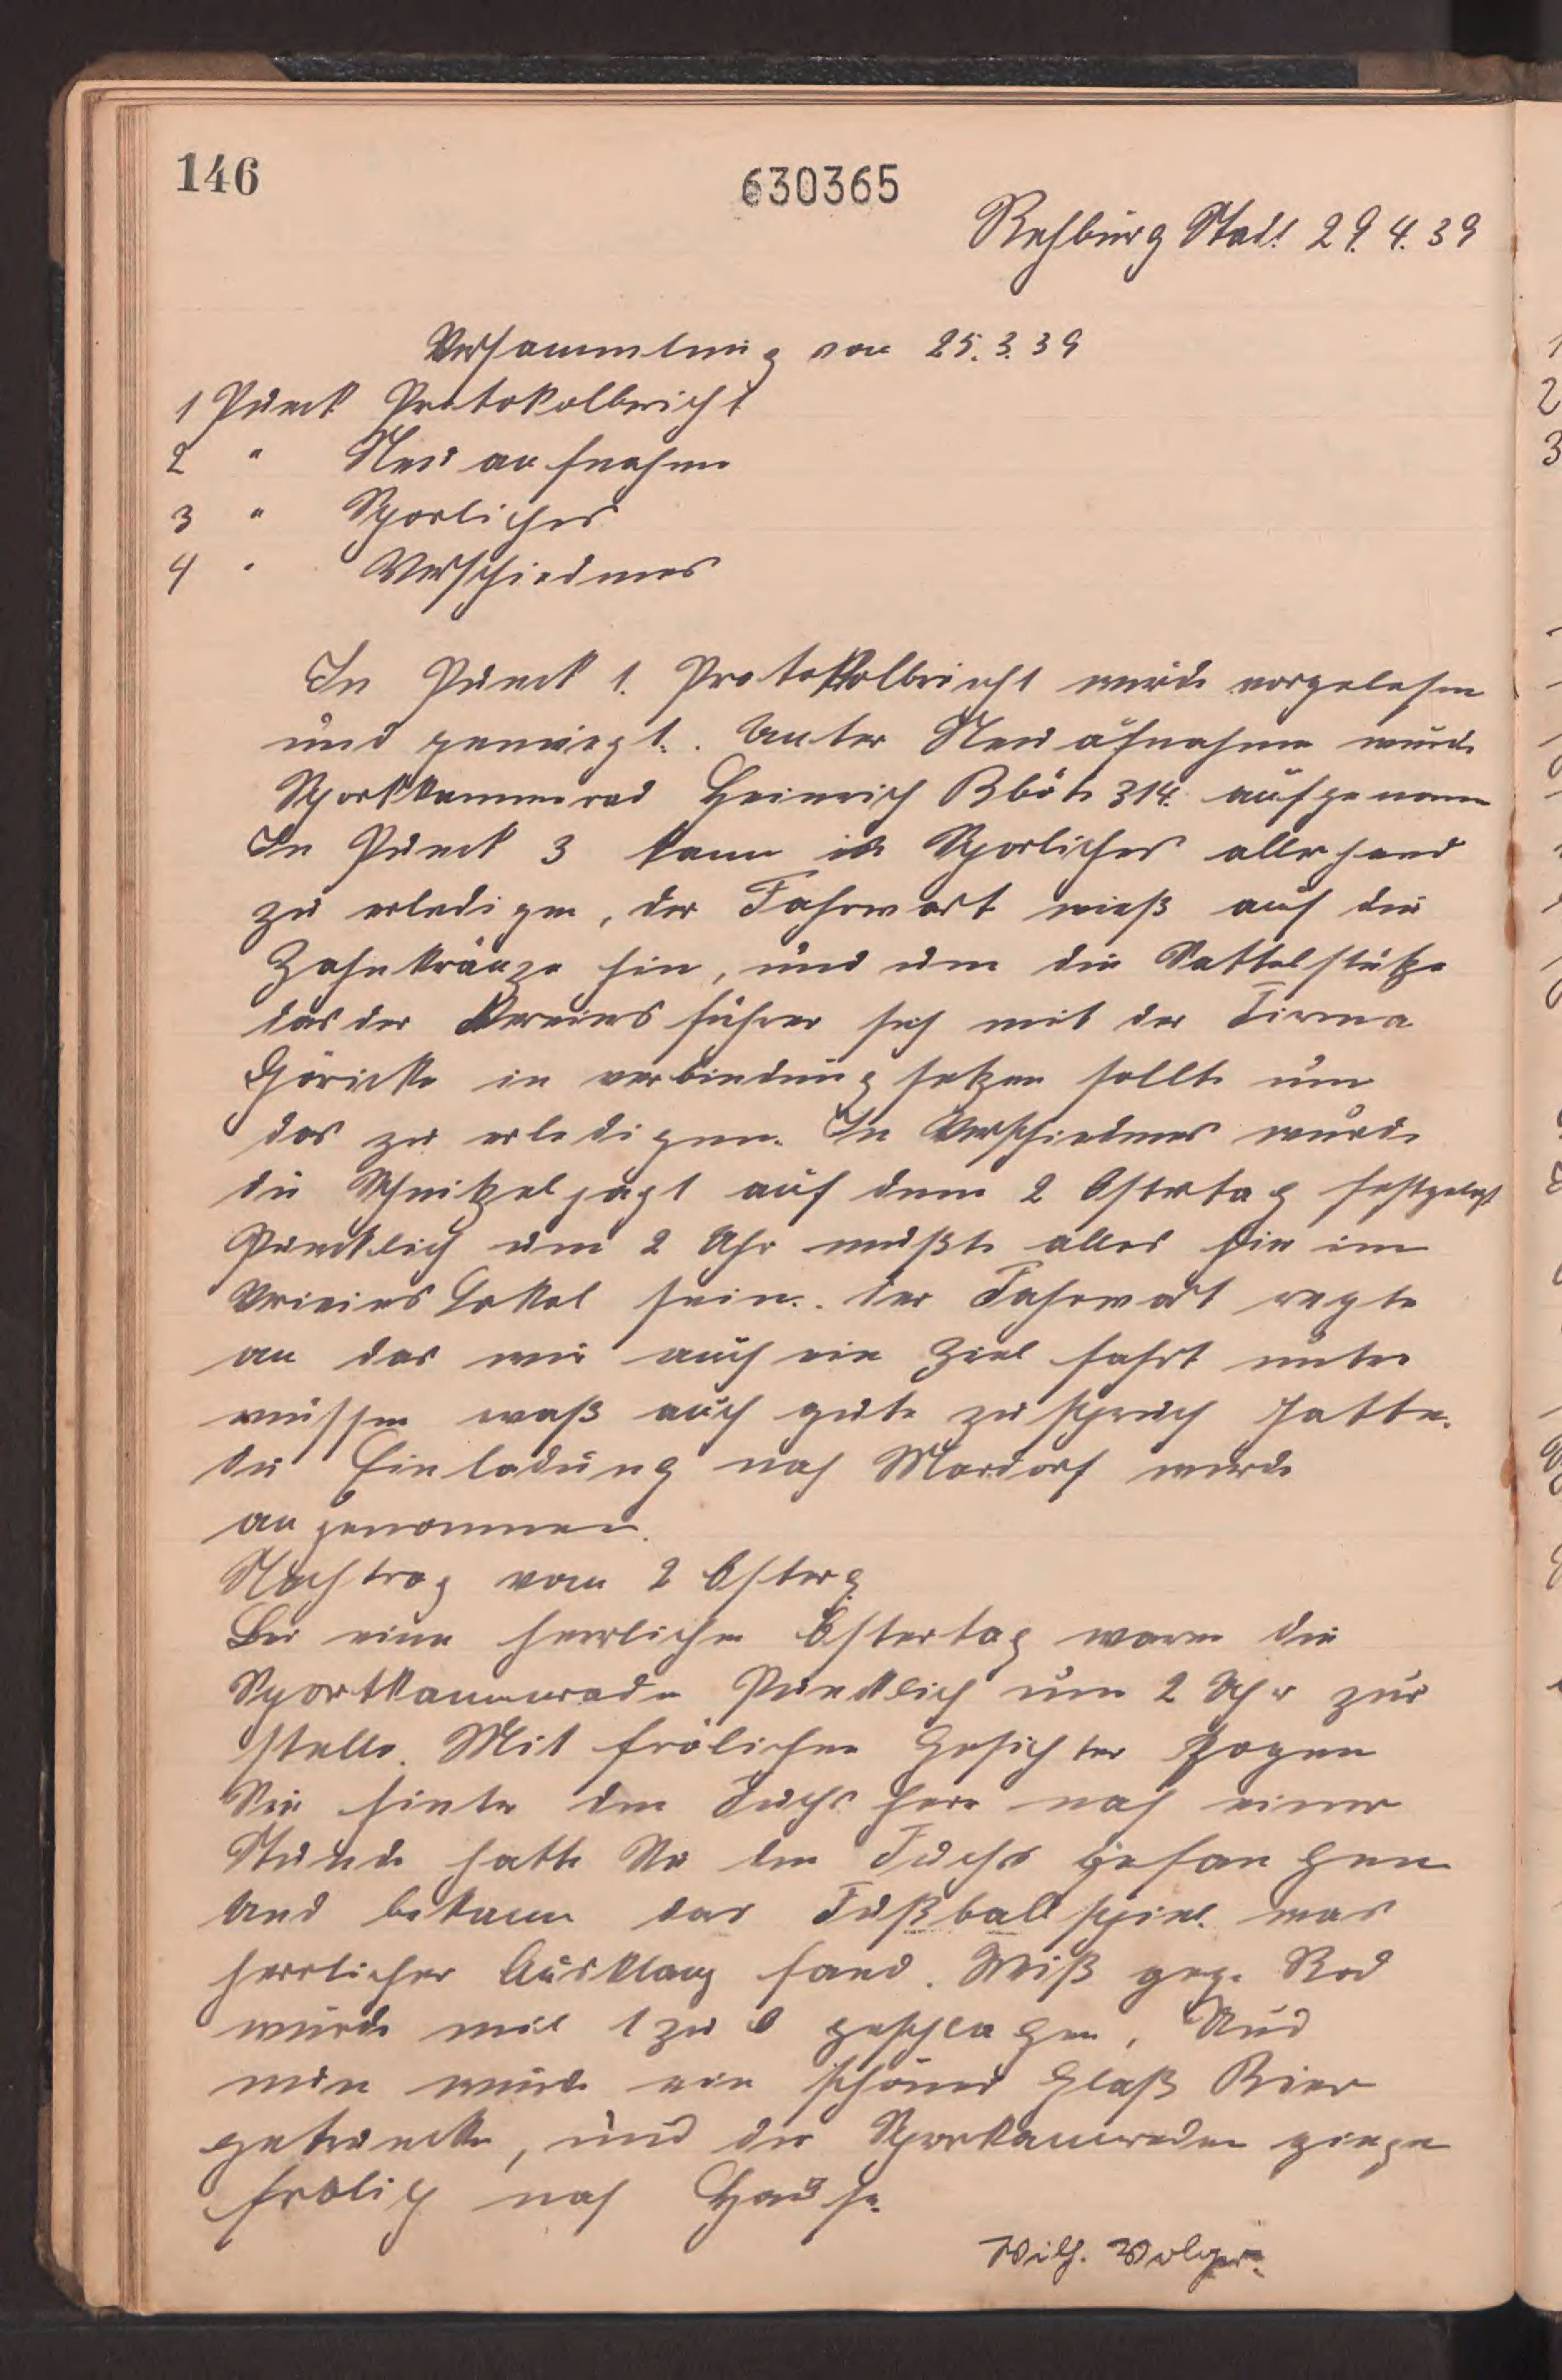 146
630365
Rehburg Stadt 29. 4. 39
Versammlung von 25. 3. 39
1 Punck Protokolbericht
2 " Neu aufnahme
3 " Sporliches
4 " Verschiedenes
In Punck 1. Protokolbericht wurde vorgelesen
und genemigt. Unter Neu aufnahme wurde
Sportkammerad Heinrich 314. aufgenomm
In Punck 3 kamm in Sporliches allerhand
zu erledigen, der Fahrwart wieß auf die
Zahnkränze hin, und um die Sattelstütze
das der Vereins führer sich mit der Firma
Göricke in verbindung setzen sollte um
das zu erledigen. In Verschiedenes wurde
die Schnitzeljagt auf dem 2 Ostertag festgelegt
Puncktlich um 2 Uhr mußte alles hir im
Vereins Lokal sein. der Fahrwart regte
an das wir auch ein Ziel fahrt unter
müssen waß auch gute zuspruch hatte.
die Einladung nach Mardorf wurde
an genommen.
Nachtrag vom 2 Osterg
Bei einen herrlichen Ostertag waren die
Sportkammeraden Puncktlich um 2 Uhr zur
stelle. Mit frölichen Gesichter zogen
Sie hinter den Fuchs herr nach einer
Stunde hatte Sie den Fuchs gefan gen
Und bekamm das Fußball spiel was
herrlicher Ausklang fand. Weiß gege Rod
wurde mit 1 zu 0 geschlagen, Und
nun wurde ein schönes Glaß Bier
getruncken, und die Sporkameraden gingen
frölich nach Hause.
Wilh. Wolger.